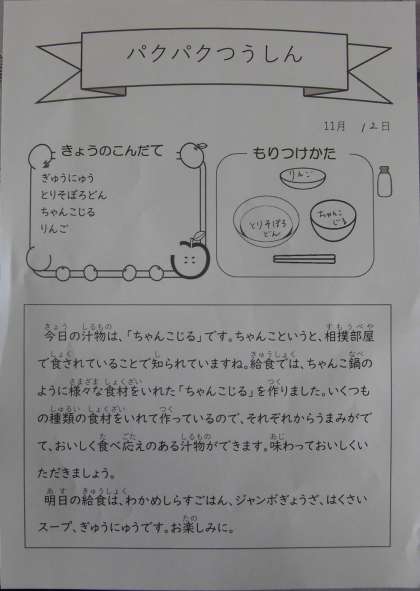 パクパクつうしん
11月 12日
きょうのこんだて
ぎゅうにゅう
とりそぼろどん
ちゃんこじる
りんご
もりつけかた
りんご
とりそぼろ
どん
ちゃんこ
じる
今日の汁物は、「ちゃんこじる」です。ちゃんこというと、相撲部屋
で食されていることで知られていますね。給食では、ちゃんこ鍋の
ように様々な食材をいれた「ちゃんこじる」を作りました。いくつも
の種類の食材をいれて作っているので、それぞれからうまみがで
て、おいしく食べ応えのある汁物ができます。味わっておいしくい
ただきましょう。
明日の給食は、わかめしらすごはん、ジャンボぎょうざ、はくさい
スープ、ぎゅうにゅうです。お楽しみに。